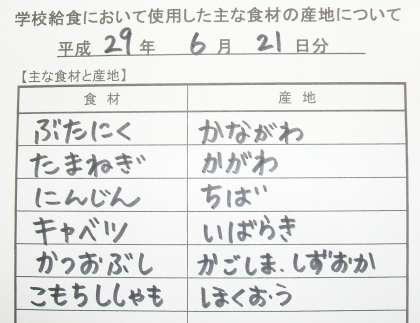 学校給食において使用した主な食材の産地について
平成 29 年 6 月 21 日分
【主な食材と産地】
食材 産地
ぶたにく かながわ
たまねぎ かがわ
にんじん ちば
キャベツ いばらき
かつおぶし かごしま、しずおか
こもちししゃも ほくおう